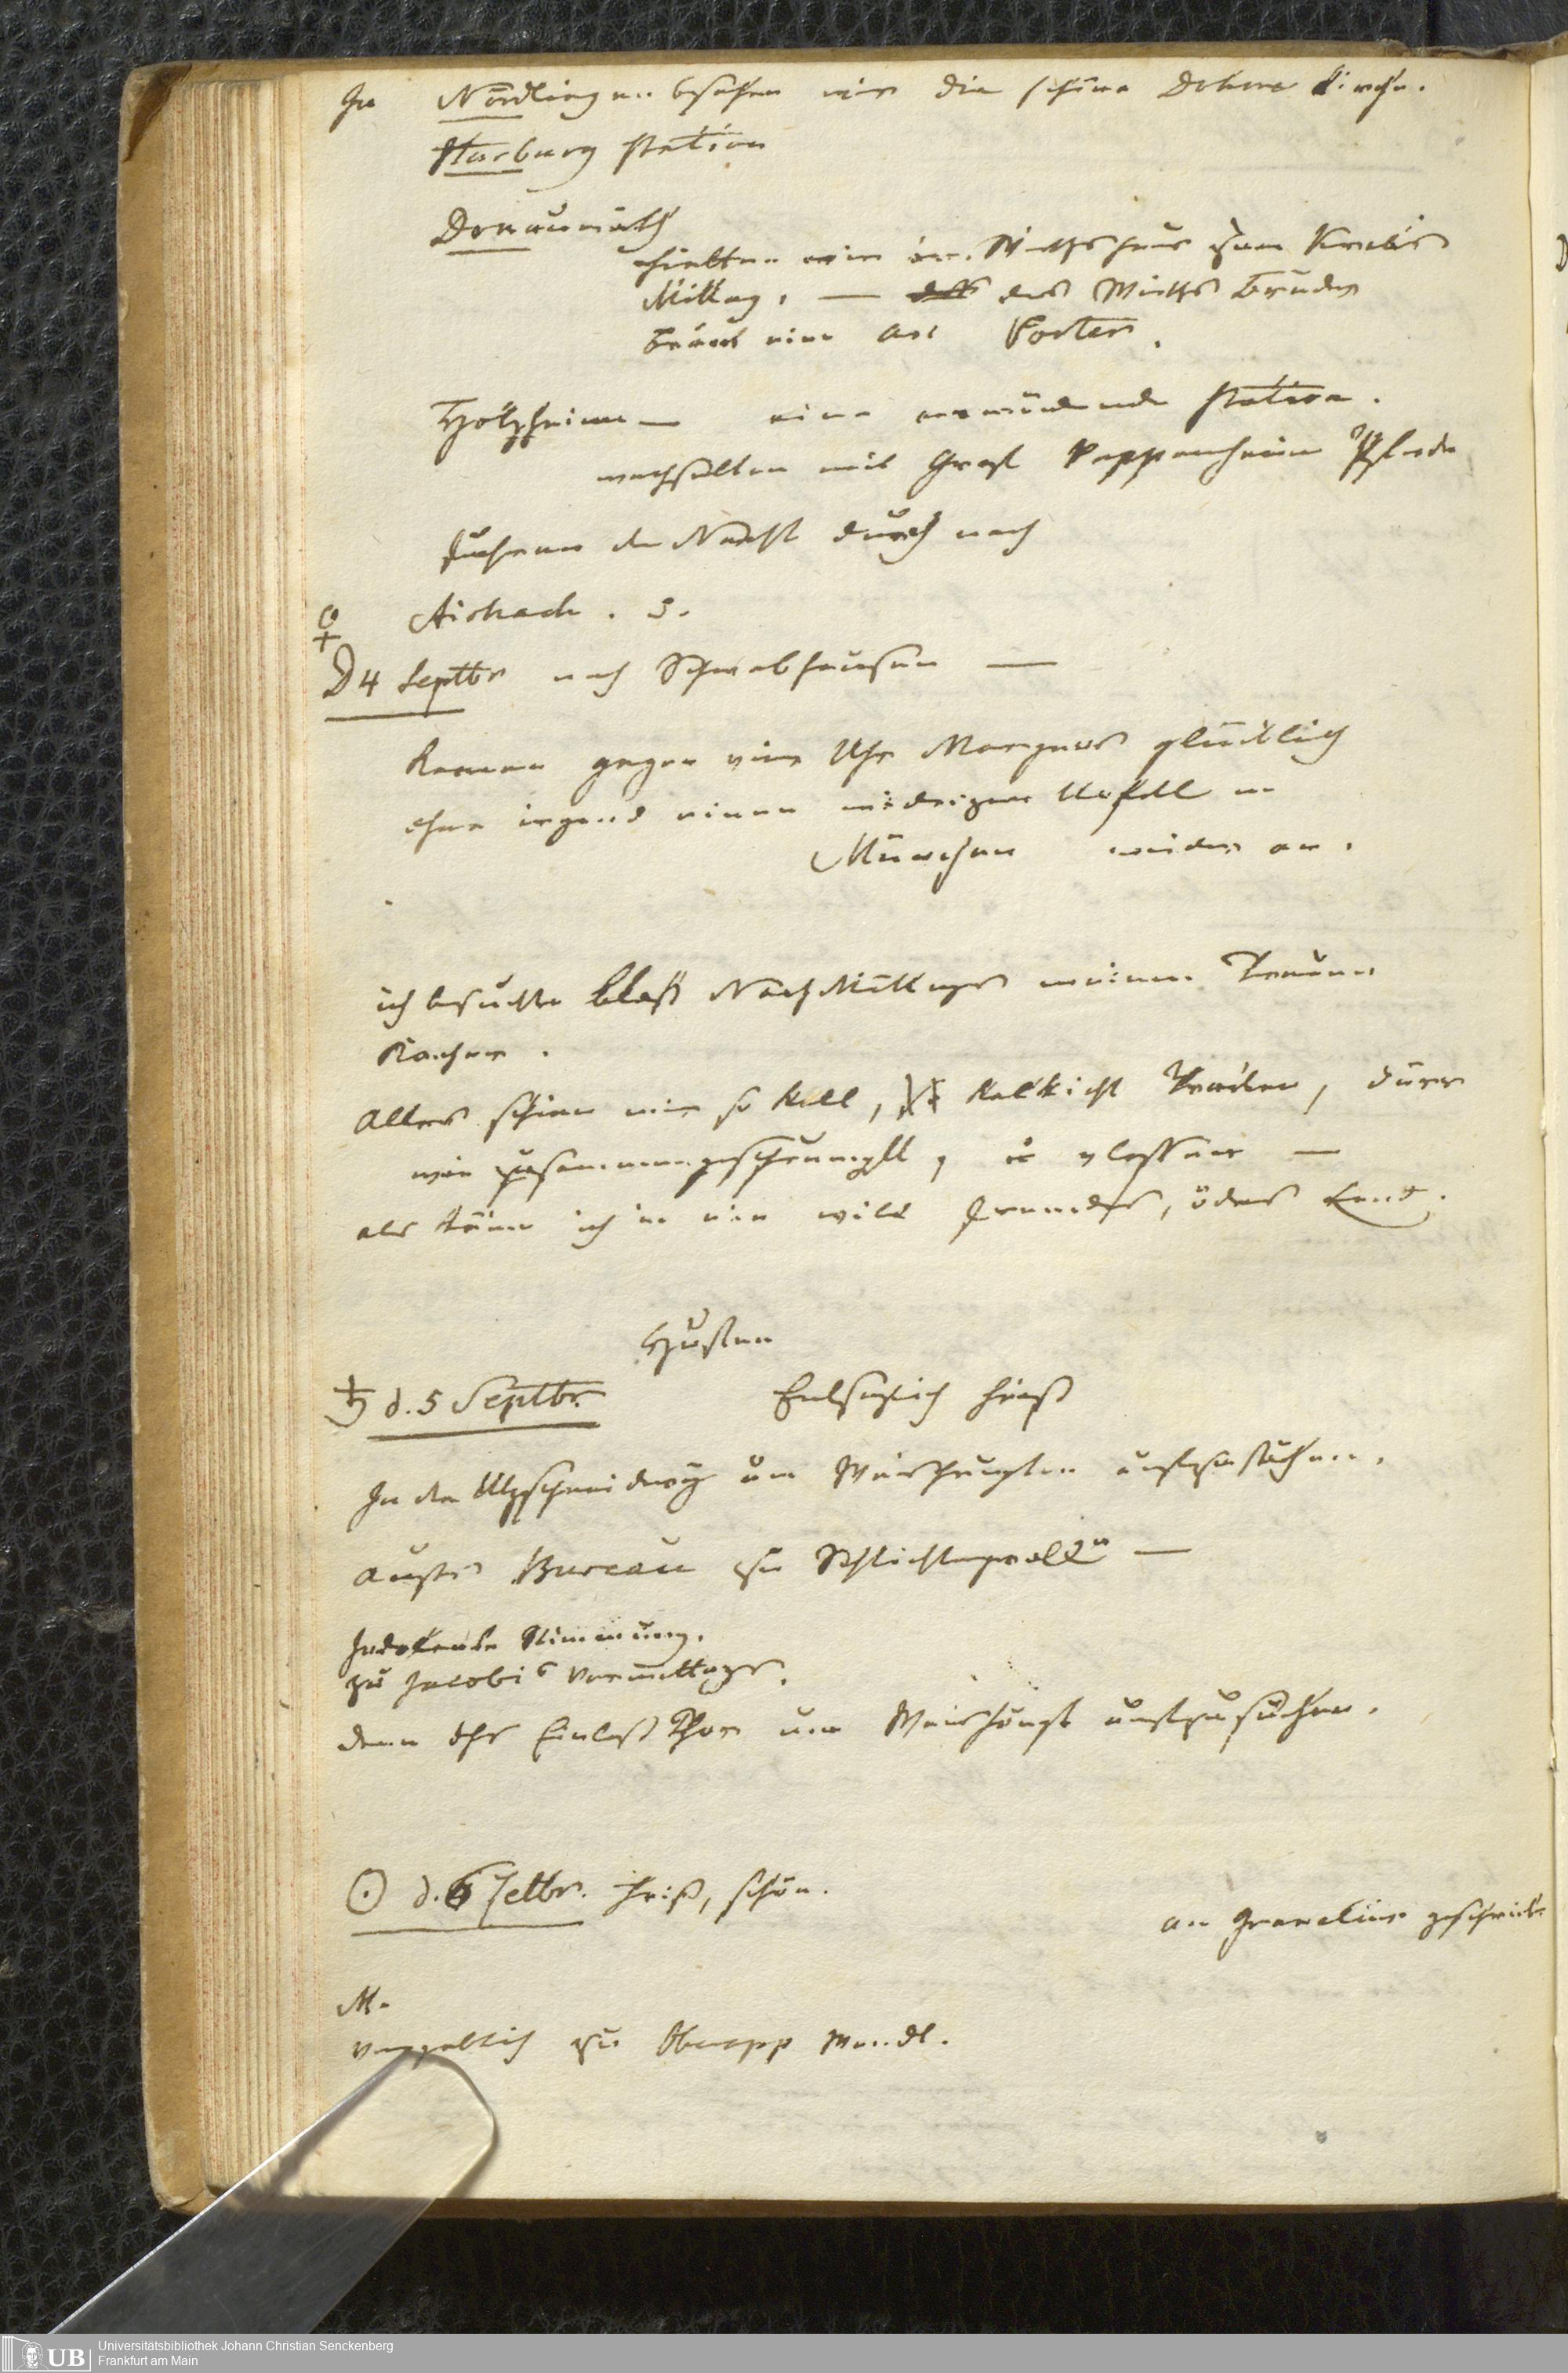 In Nördlingen besahen wir die schöne Dohm Kirche.
Harburg Station
Donauwörth
hielten wir im Wirthshaus zum Krebs
Mittag. — des Wirths Bruder
braut eine Art Porter.
Holzheim — eine ermüdende Station.
wechselten mit Graf Pappenheim Pferde
fuhren die Nacht durch nach
Aichach. 3.
♀ D 4 Septbr nach Schwabhausen —
Kamen gegen eine Uhr Morgens glücklich
ohne irgend einen widrigen Unfall in
München wieder an.
ich besuchte bloß Nachmittags meinen
Alles schien mir so kalt, kalkicht, dürr
wie zusammengeschrumpft, & —
als käme ich in ein wild fremdes, ödes Land.
Husten
♄ d. 5 Septbr. Entsetzlich heiß
In der Utzschneiderey um aufzusuchen.
aufs Bureau zu Schlichtegroll —
Indolente Stimmung.
zu Jacobi Vormittags.
dem Einlaß Thor um aufzusuchen.
☉ d. 6 Setbr. heiß, schön.
an geschrieb.
M.
vergeblich zu Oberapp
Universitätsbibliothek Johann Christian Senckenberg
Frankfurt am Main
UB